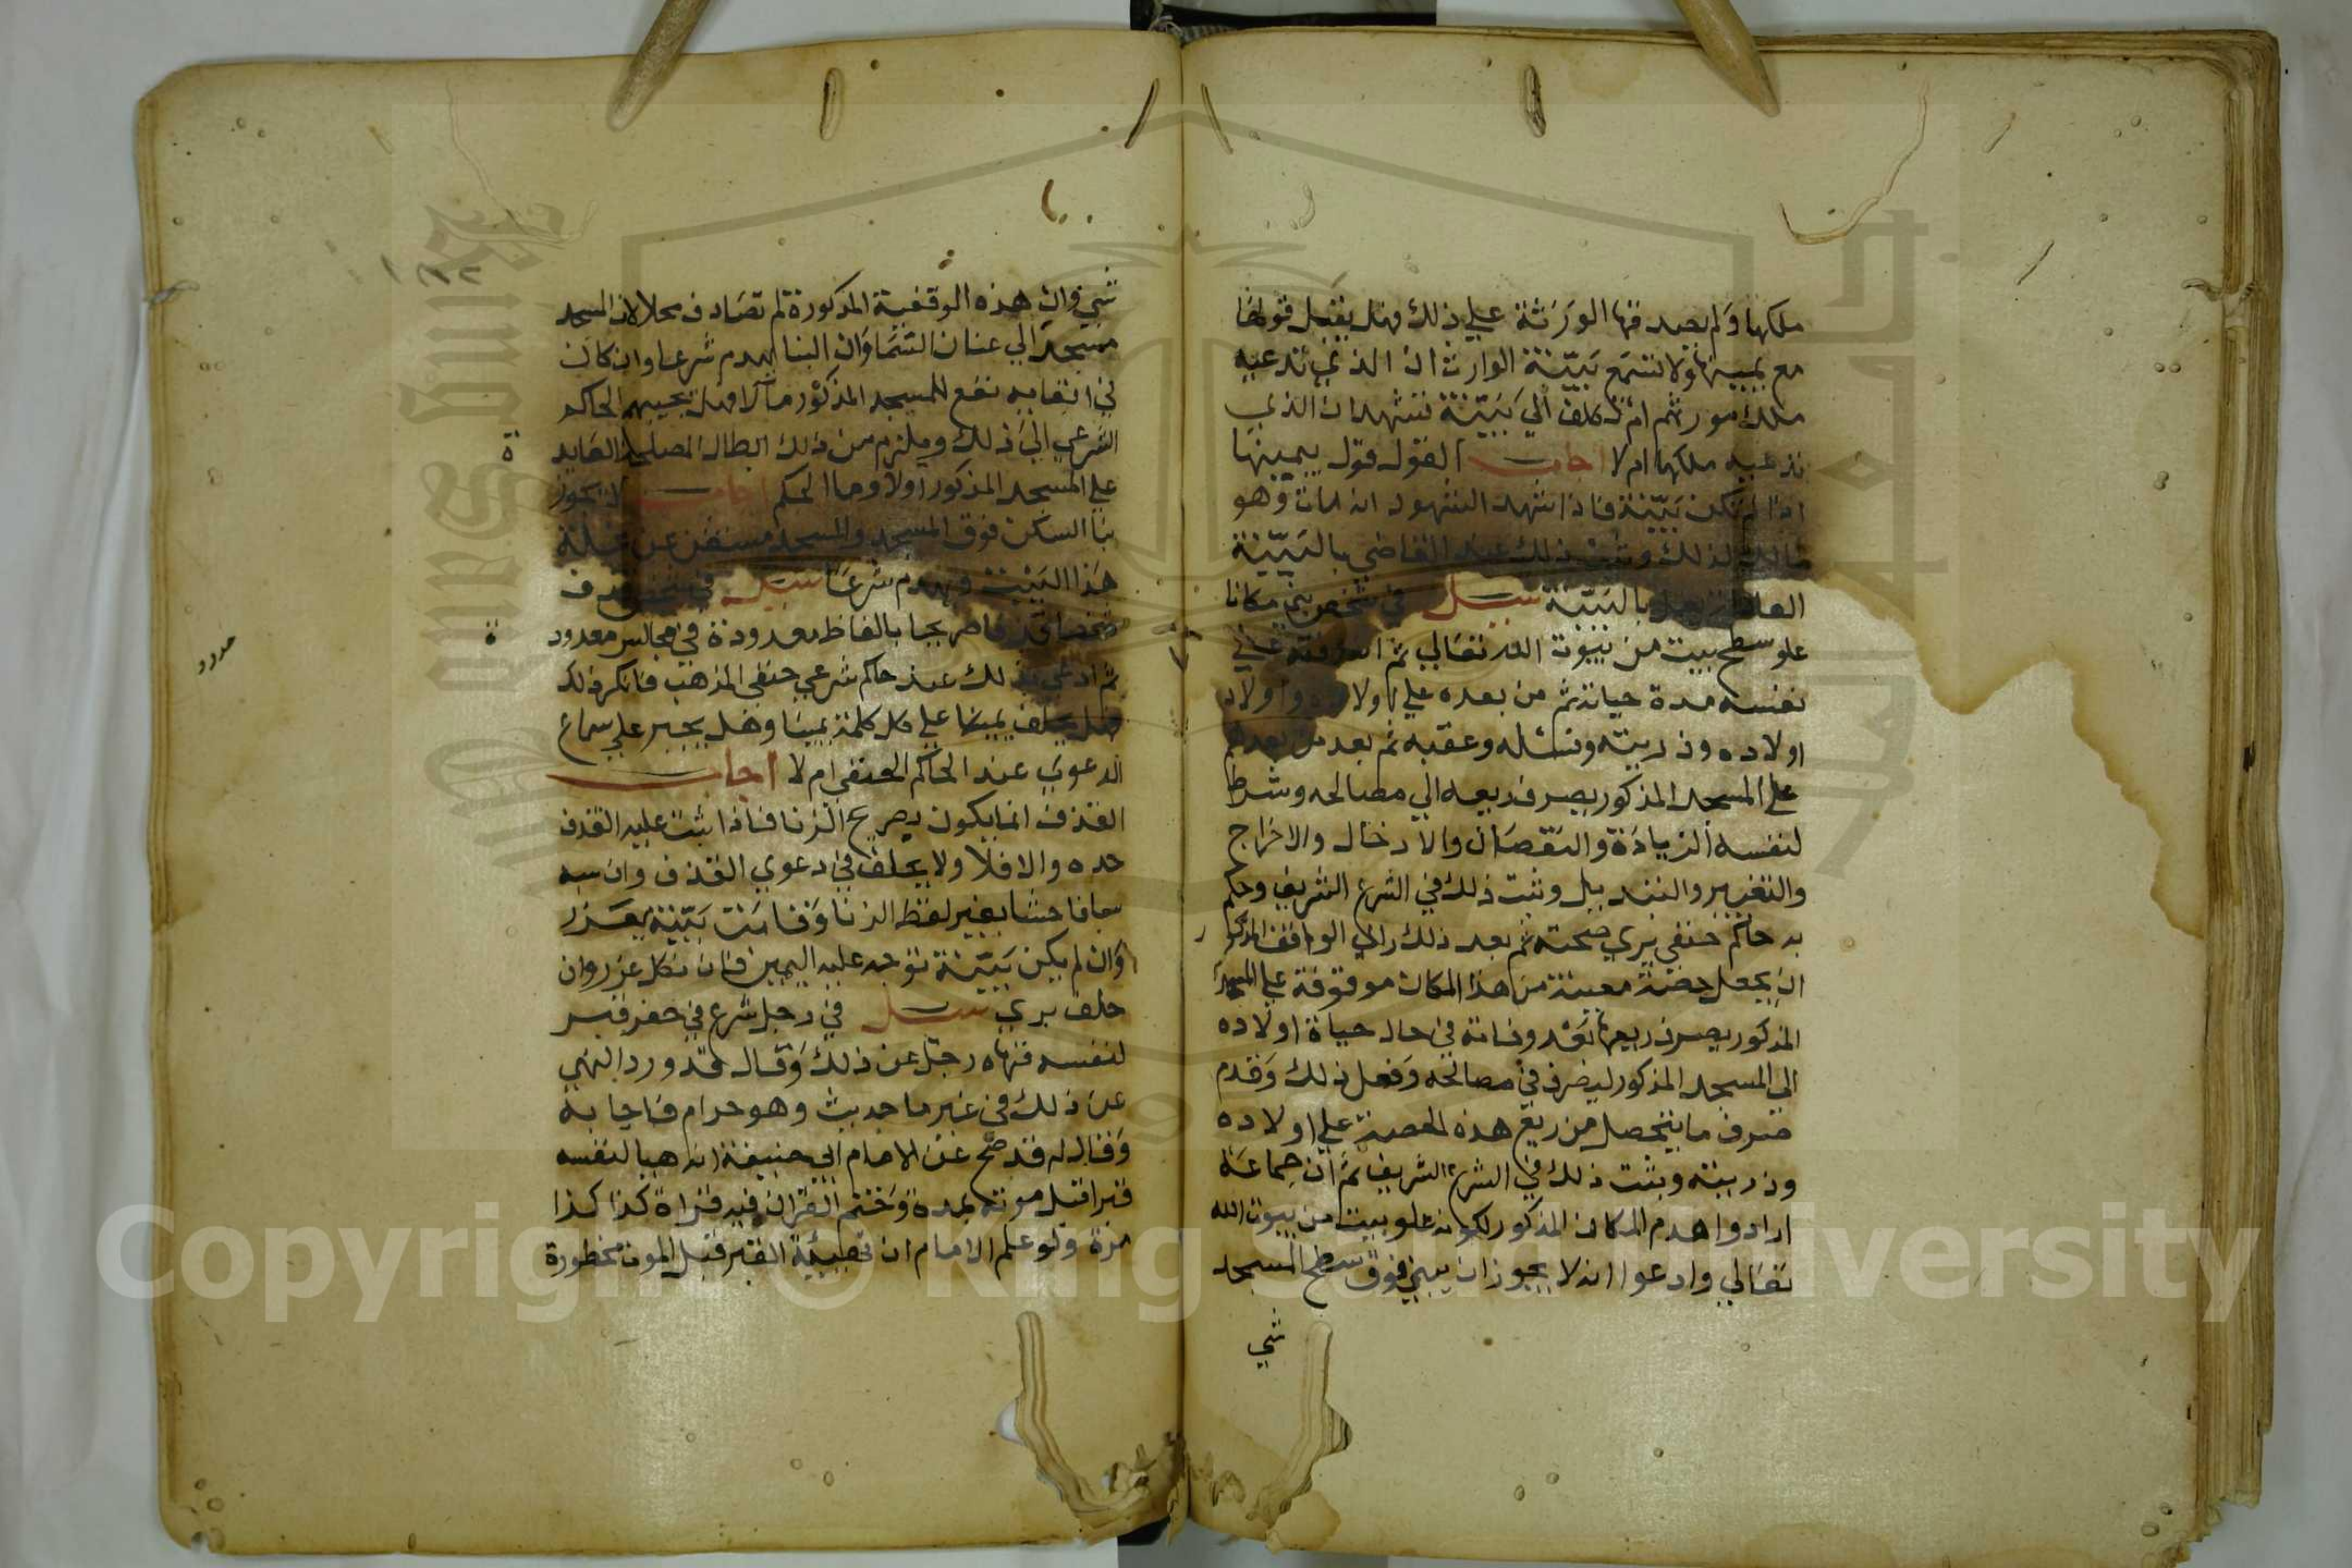 ملكها ولم يصدقها الورثة علي ذلك فهل يقبل قولها
مع يمينها ولا تسمع بينة الوارث ان الذي تدعيه
ملك مورثهم ام تكلف الي بينة تشهد ان الذي
تدعيه ملكها ام لا اجاب القول قول بيمينها
اذا لم تكن بينة فاذا شهد الشهود انه مات وهو
مالك لذلك وثبت ذلك عند القاضي بالبينة
بالبينة سيل في شخص بني مكانا
علو سطح بيت من بيوت الله تعالي ثم انه وقفه علي
نفسه مدة حياته ثم من بعده علي اولاده واولاد
اولاده وذريته ونسله وعقبه ثم بعد من بعدهم
علي المسجد المذكور يصرف ريعه الي مصالحه وشرط
لنفسه الزيادة والنقصان والادخال والاخراج
والتغيير والتبديل وثبت ذلك في الشرع الشريف وحكم
به حاكم حنفي يري صحته ثم بعد ذلك راي الواقف المذكور
ان يجعل حصة معينة من هذا المكان موقوفة علي المسجد
المذكور يصرف ريعها بعد وفاته في حال حياة اولاده
الي المسجد المذكور ليصرف في مصالحه وفعل ذلك وقدم
صرف ما يتحصل من ريع هذه الحصة علي اولاده
وذريته وثبت ذلك في الشرع الشريف ثم ان جماعة
ارادوا هدم المكان المذكور لكونه علو بيت من بيوت الله
تعالي وادعوا انه لا يجوز ان يبني فوق سطح المسجد
شي
شي وان هذه الوقفية المذكورة لم تصادف محلا لان المسجد
مسجد الي عنان السما وان البنا يهدم شرعا وان كان
في ابقايه نفع للمسجد المذكور مآلا فهل يجيبهم الحاكم
الشرعي الي ذلك ويلزم من ذلك ابطال المصلحة العايد
ة
علي المسجد المذكور اولا وما الحكم اجاب لا يجوز
بنا السكن فوق المسجد والمسجد مستغن عن غلة
هذا البيت ويهدم شرعا سيل في شخص قذف
شخصا بالفاظ معدودة في مجالس معدود
ة
معدود
ثم ادعي بذلك عند حاكم شرعي حنفي المذهب فانكر ذلك
هل يحلف يمينا علي كل كلمة يمينا وهل يجبر علي سماع
الدعوي عند الحاكم الحنفي ام لا اجاب
القذف انما يكون بصريح الزنا فاذا ثبت عليه القذف
حده والا فلا ولا يحلف في دعوي القذف وان سبه
سبا فاحشا بغير لفظ الزنا وقامت بينة يعزر
وان لم يكن بينة توجه عليه اليمين فان نكل عزر وان
حلف بري سيل في رجل شرع في حفر قبر
لنفسه فنهاه رجل عن ذلك وقال قد ورد النهي
عن ذلك في غير ما حديث وهو حرام فاجابه
وقال له قد صح عن الامام ابي حنيفة انه هيا لنفسه
قبرا قبل موته بمدة وختم القران فيه قراة كذا كذا
مرة ولو علم الامام ان تهيئة القبر قبل الموت محظورة
Copyright © King Saud University